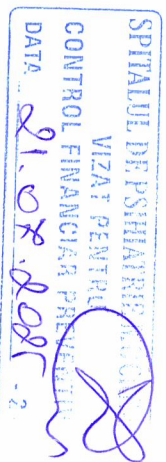 SPITALUL DE PSIHIATRIE
VIZAT PENTRU
CONTROL FINANCIAR PREVENTIV
DATA 21.07.2025 - 2